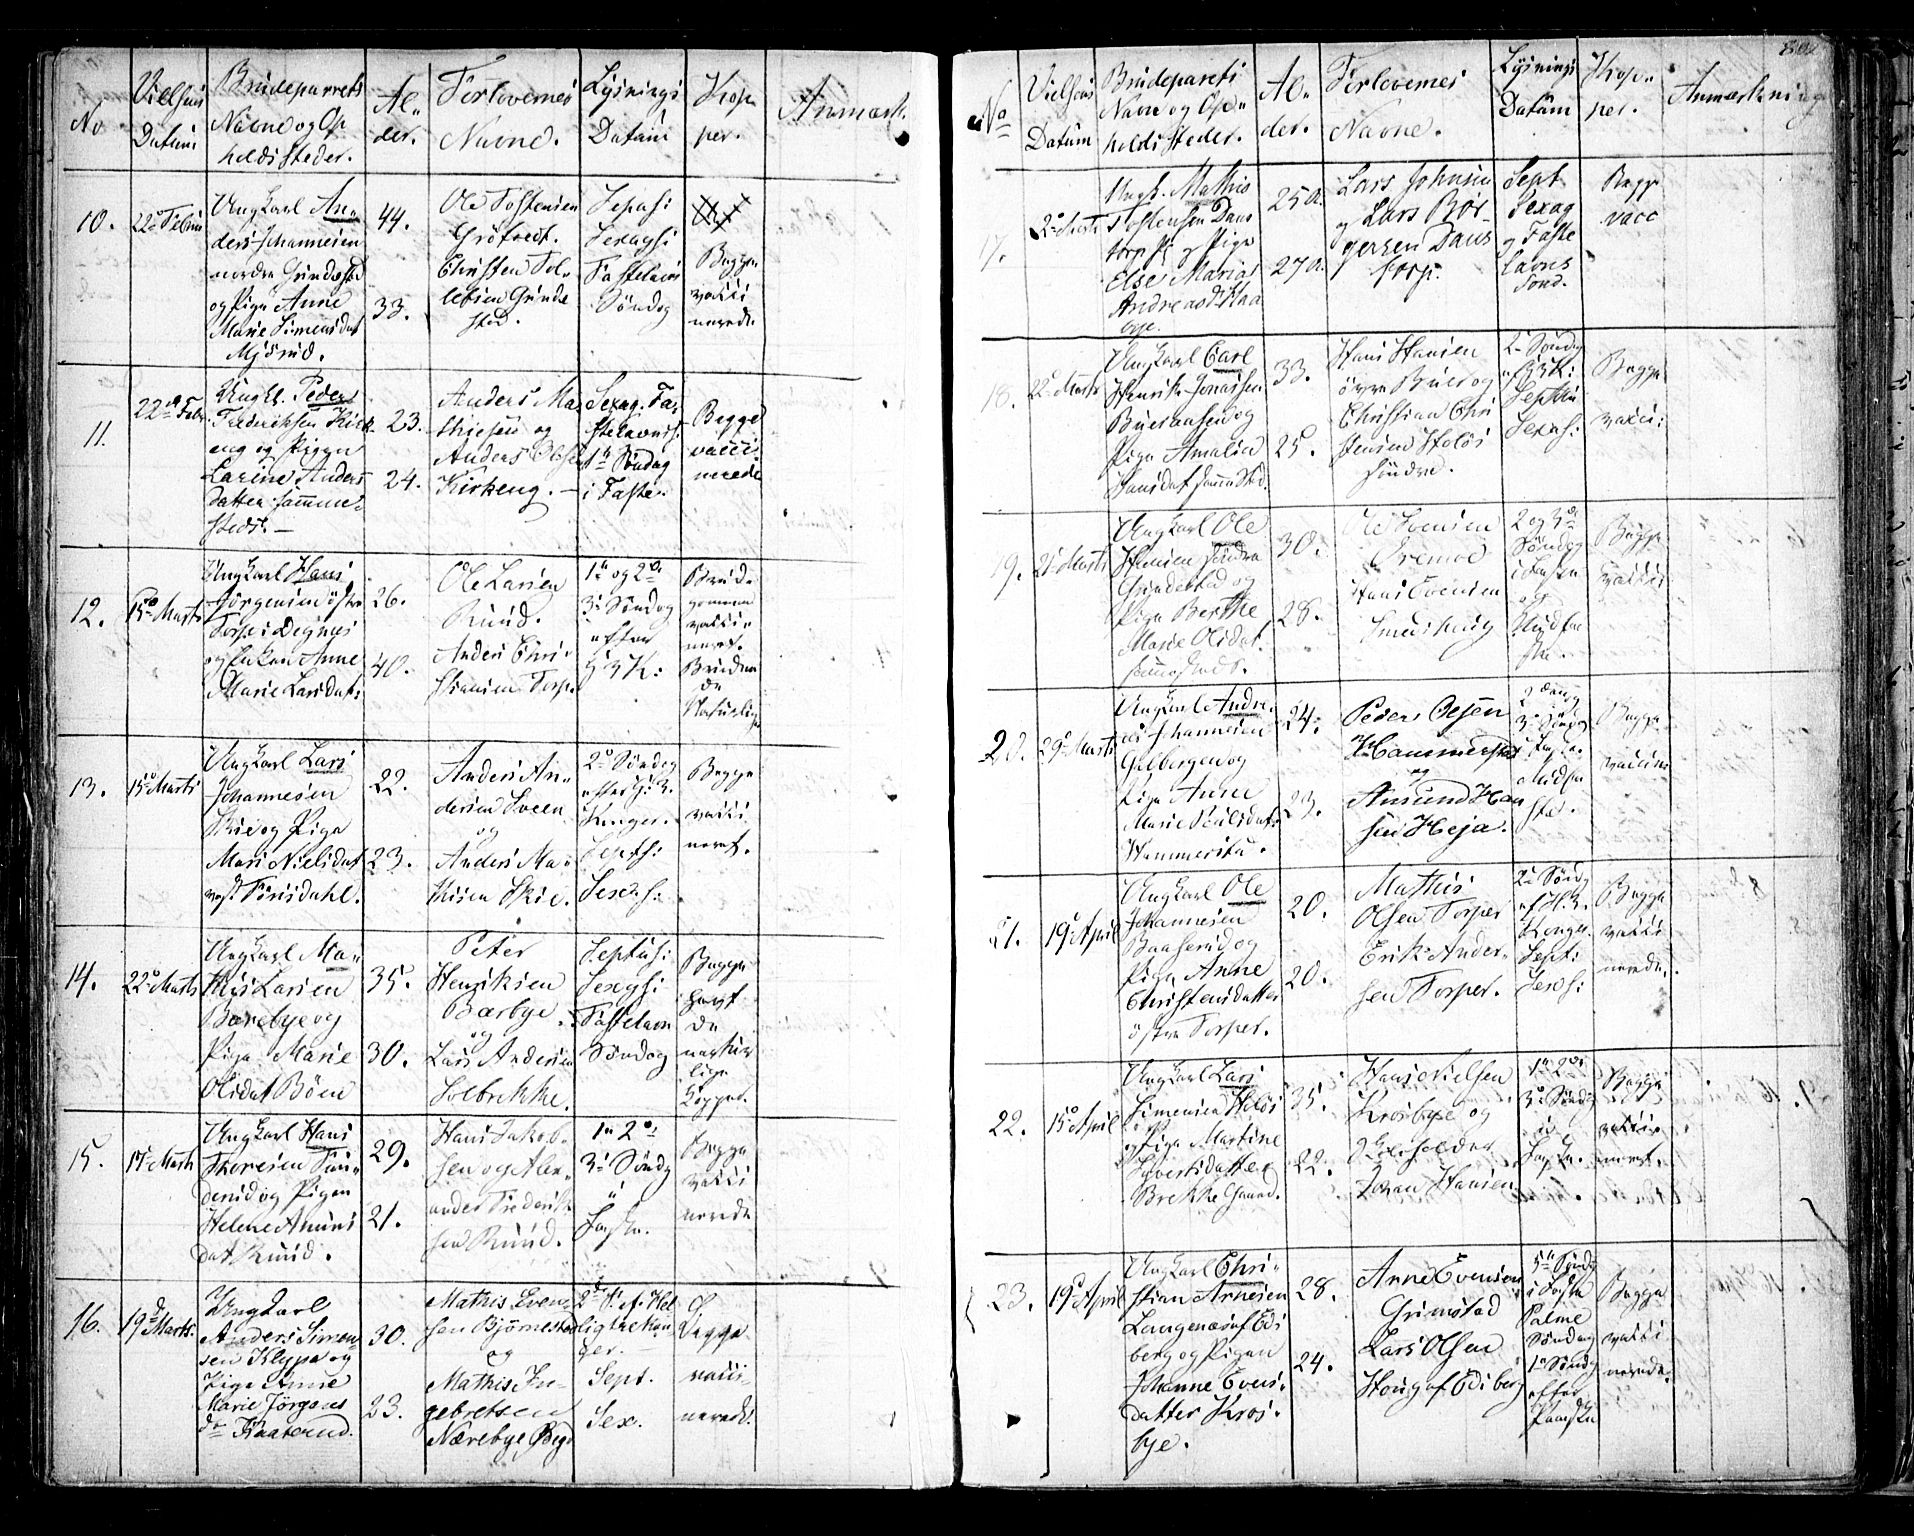 No
Vielses
Datum
Brudeparrets
Navne og Op
holdssteder.
Al-
der.
Forlovernes
Navne.
Lysnings
Datum
Kop
per.
Anmærk.
10.
22 Febru
Ungkarl An-
ders Johannesen
nordre Grindestad
og Pige Anne
Marie Simensdat
Mjörud.
44.
33.
Ole Tostensen
Grötvedt.
Christen Tol-
lefsen Grinde
stad.
Sexags:
Fastelavns
Söndag
Begge
vacci
nerede
11.
22de Febr.
Ungk. Peder
Frederiksen Kirk
eng og Pigen
Larine Anders
datter samme-
steds. —
23.
24.
Anders Ma
thiesen og
Anders Olsen
Kirkeng. —
Sexag. Fa-
stelavns.
1te Söndag
i Faste.
Begge
vacci-
nerede
12.
15de Marts
Ungkarl Hans
Jörgensen östre
Torper Degnes
og Enken Anne
Marie Larsdat:
26.
40.
Ole Larsen
Ruud.
Anders Chri-
stiansen Torp.
1te og 2de
3die Söndag
efter
H 3 K:
Brud-
gommen
vacci-
neret.
Bruden
de
Naturlige
13.
15 Marts
Ungkarl Lars
Johannesen
Skie og Pige
Mari Nielsdat
Torisdahl.
22.
23.
Anders An-
dersen Sveen
og
Anders Ma-
thisen Skie.
2de Söndag
efter H. 3.
Konger.
Septs:
Sexs:
Begge
vacci
neret.
14.
22 Marts
Ungkarl Ma-
this Larsen
Bærebye og
Pige Marie
Olsdat Böen
35.
30.
Peter
Henriksen
Bærbye
og
Lars Andersen
Solbrekke.
Septus:
Sexgs:
Fastelavn
Söndag
Begge
havt
de
natur
lige
Kopper.
15.
Marts
Ungkarl Hans
Thoresen Tun-
derud og Pigen
Helene Amuns
dat Ruud.
29.
21.
Hans Jakob-
sen og Alex-
ander Frederik-
sen Ruud.
1te 2de
3die Söndg
i
Faste.
Begge
vacci
nerede
16.
19de Marts.
Ungkarl
Anders Simen-
sen Klype og
Pige Anne
Marie Jörgens
da Kaaterud.
30.
23.
Mathis Even-
sen Björnestad
og
Mathis In-
gebretsen
Nærebye
2de S. ef. Hel
lig tre Kon
ger. —
Sept.
Sex.
Begge
vacci-
nerede.
No
Vielses
Datum
Brudeparrets
Navn og Op-
holdssteder.
Al-
der.
Forlovernes
Navne.
Lysnings
Datum
Kop-
per.
Anmærkning
17.
2 Marts
Ungk. Mathis
Tostensen Dans
torp og Pige
Else Maria
Andreasd. Haa
bye.
25 a.
27 a.
Lars Johnsen
og Lars Bör-
gersen Dans
torp.
Sept
Sexag
og Faste
lavns
Sond.
Begge
vacc
18.
22 Marts
Ungkarl Carl
Henrik Jonassen
Bueraasen og
Pige Amalia
Hansdat samm Sted.
33.
25.
Hans Hansen
övre Bue og
Christian Chri
stensen Holös
söndre.
2 Söndg
ef H 3 K:
Septus
Sexas:
Begge
vacci:
19.
21 Marts
Ungkarl Ole
Hansen söndre
Grindestad og
Pige Berthe
Marie Olsdat.
sammesteds.
30.
28.
Ole Svensen
Hans Evensen
Smedshaug
2 og 3die
Söndag
i Fasten
og
Midfa
ste.
Begge
vacci
20.
29 Marts
Ungkarl Andre-
as Johannesen
Gulbergen og
Pige Anne
Marie Nielsdat.
Hammerstad.
24.
23.
Peder Olsen
Hammerstad
og
Amund Han
sen Heja.
2den og
3die Söndg
i Faste.
Midfa
ste.
Begge
vaccine
21.
19 April
Ungkarl Ole
Johannesen
Baaserud og
Pige Anne
Christensdatter
östre Torper.
20.
20.
Mathis
Olsen Torper
Erik Ander-
sen Torper.
2de Söndg
ef H. 3.
Konger.
Sept:
Sexs:
Begge
vacci
nerede.
22.
15 April
Ungkarl Lars
Simensen Holös
og Pige Martine
Syversdatter
Brekke
35.
22.
Hans Nielsen
Krosbye og
Johan Hansen
1te 2de
3die Söndg
i
Faste.
Begge
vacci-
neret.
23.
19 April
Ungkarl Chri-
stian Arnesen
Langenæs af Eds
berg og Pigen
Johanne Evens
datter Kros-
bye.
28.
24.
Arne Evensen
Grimstad
Lars Olsen
Houg af Edsberg
5te Söndg
i Faste
Palme
Söndag
1te Söndg
efter
Paaske
Begge
vacci
nerede.